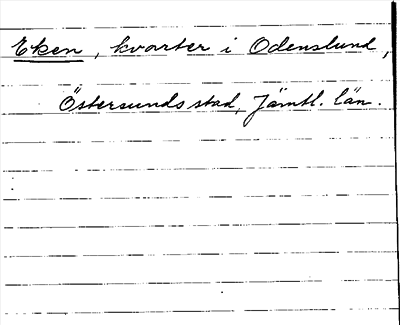 Eken, kvarter i Odenslund,
Östersunds stad, Jämtl. län.